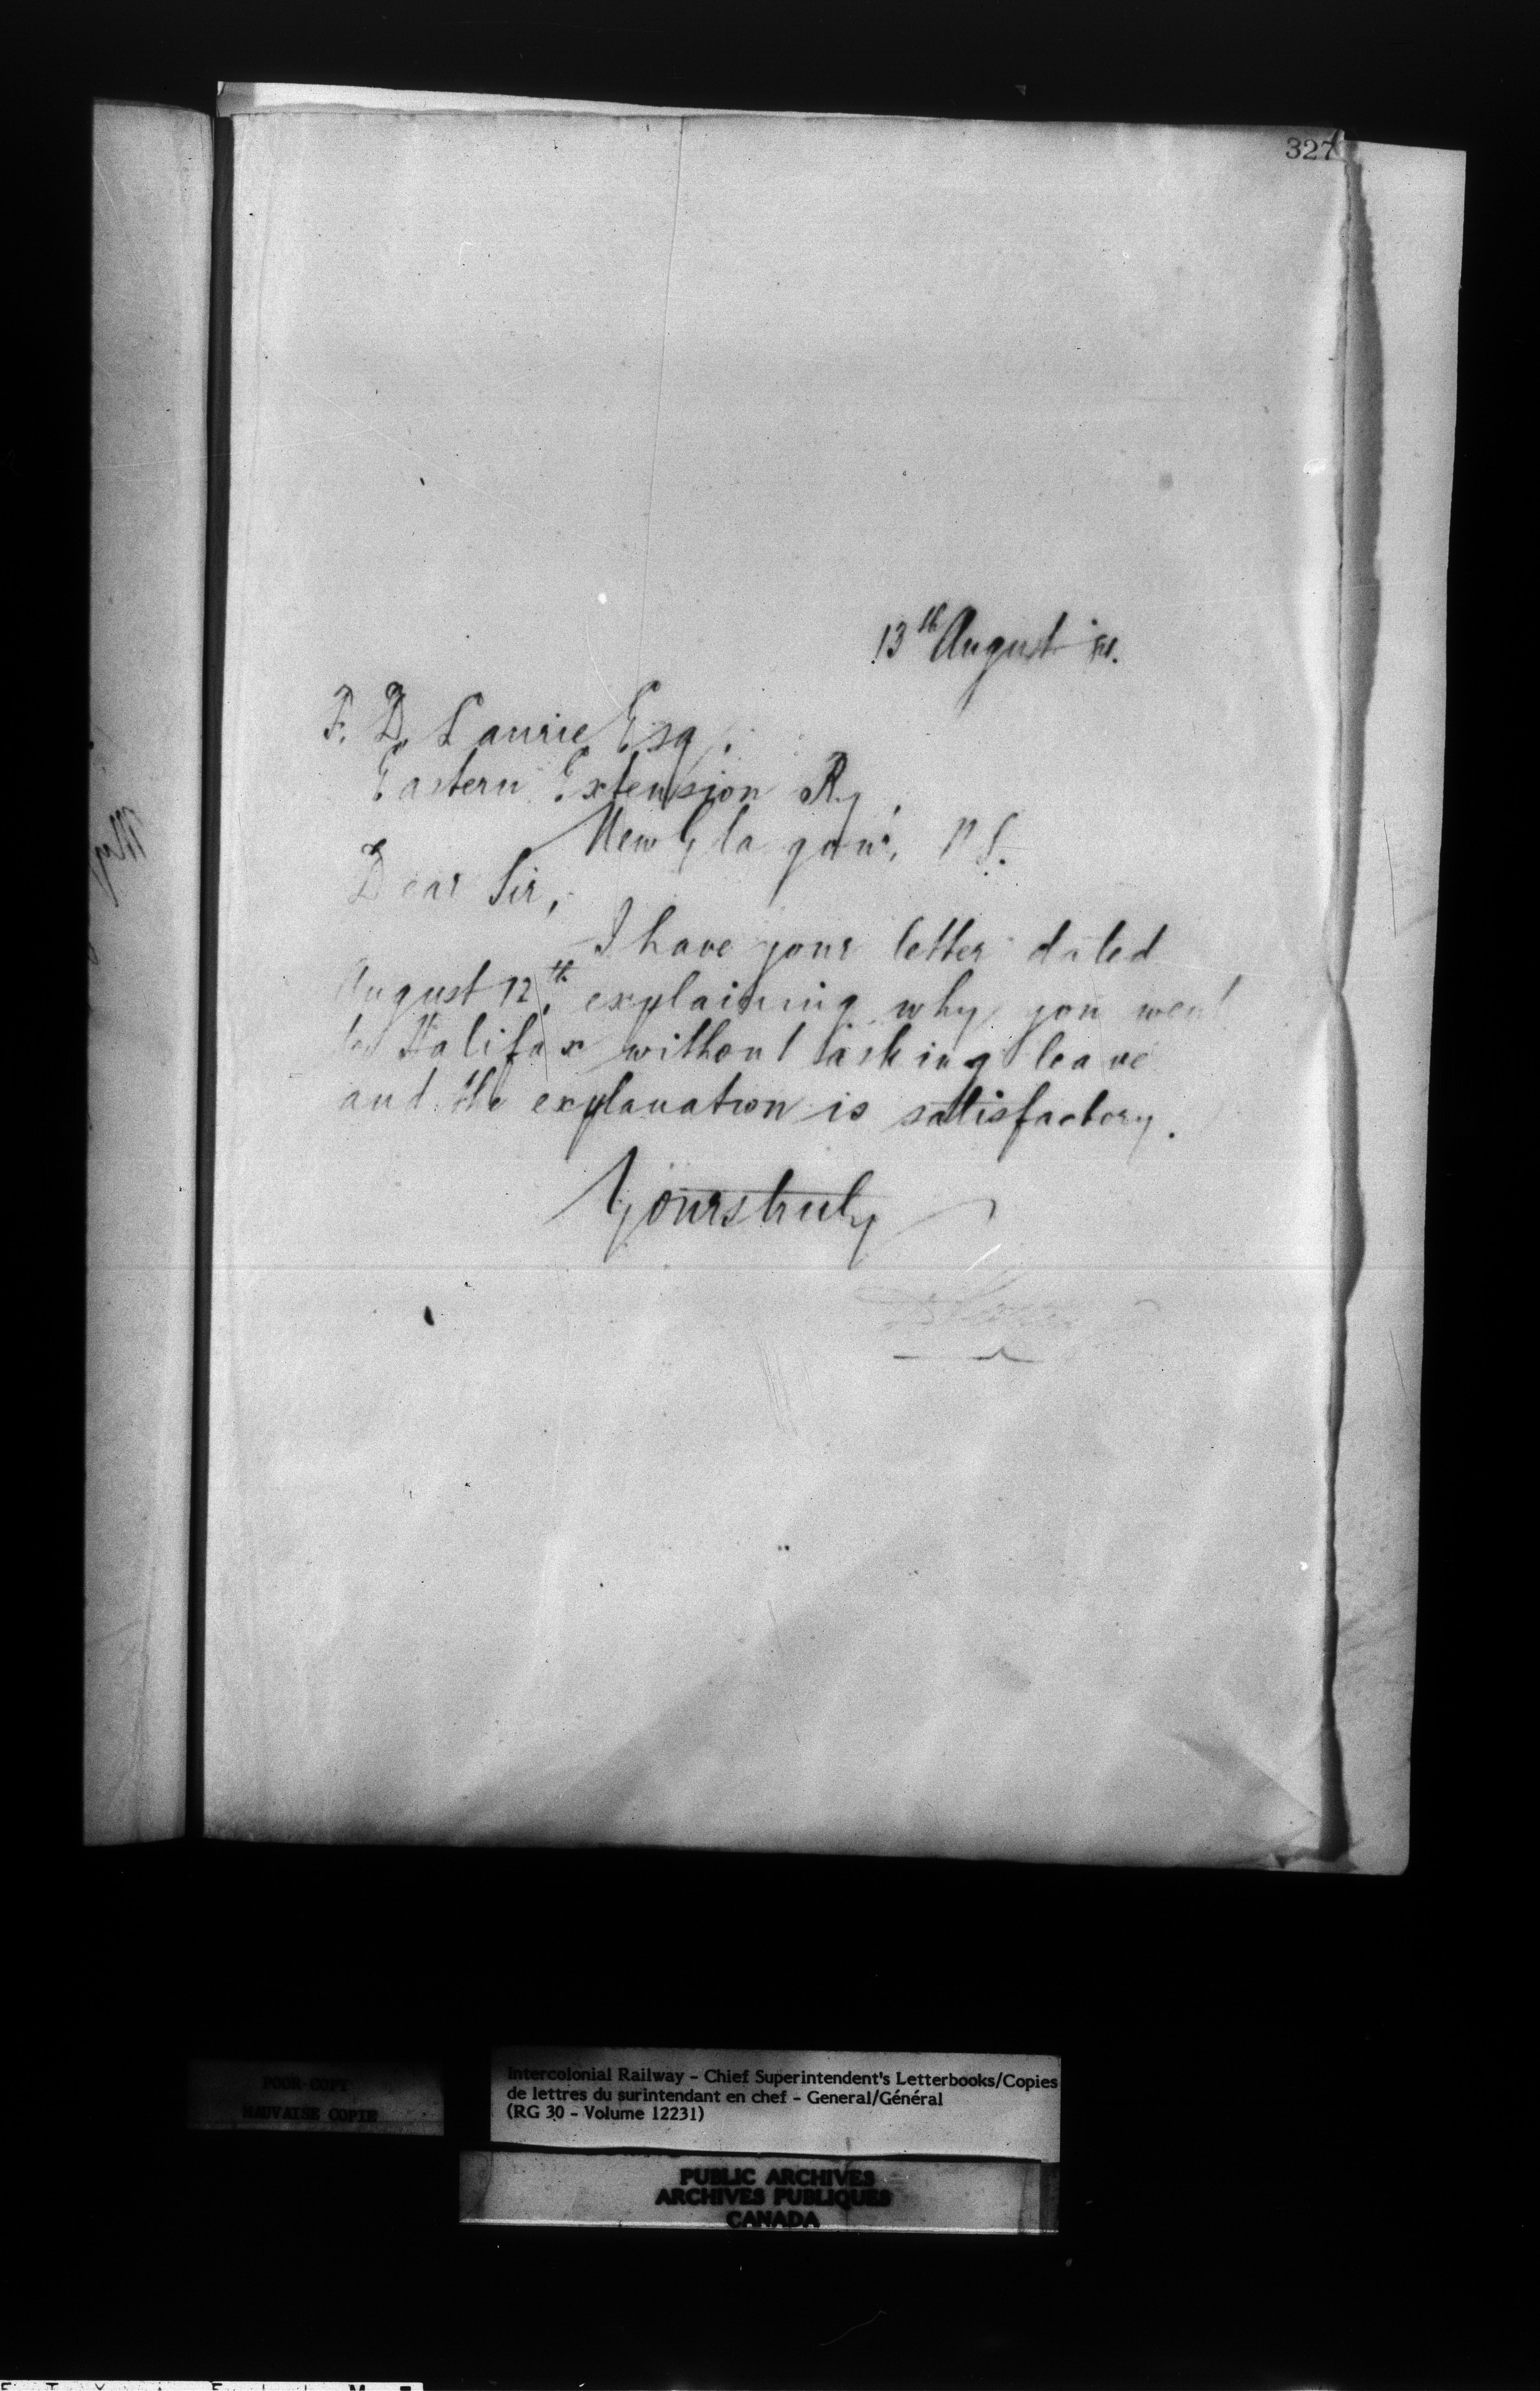 327
13th August
F. D. Laurie Esq.
Eastern Extension Ry,
New Glasgow, N S.
Dear Sir,
I have your letter dated
August 12th, explaining why you went
to Halifax without asking leave
and the explanation is satisfactory.
Yours truly
POOR COPY
MAUVAISE COPIE
Intercolonial Railway - Chief Superintendent's Letterbooks/Copies
de lettres du surintendant en chef - General/Général
(RG 30 - Volume 12231)
PUBLIC ARCHIVES
ARCHIVES PUBLIQUES
CANADA